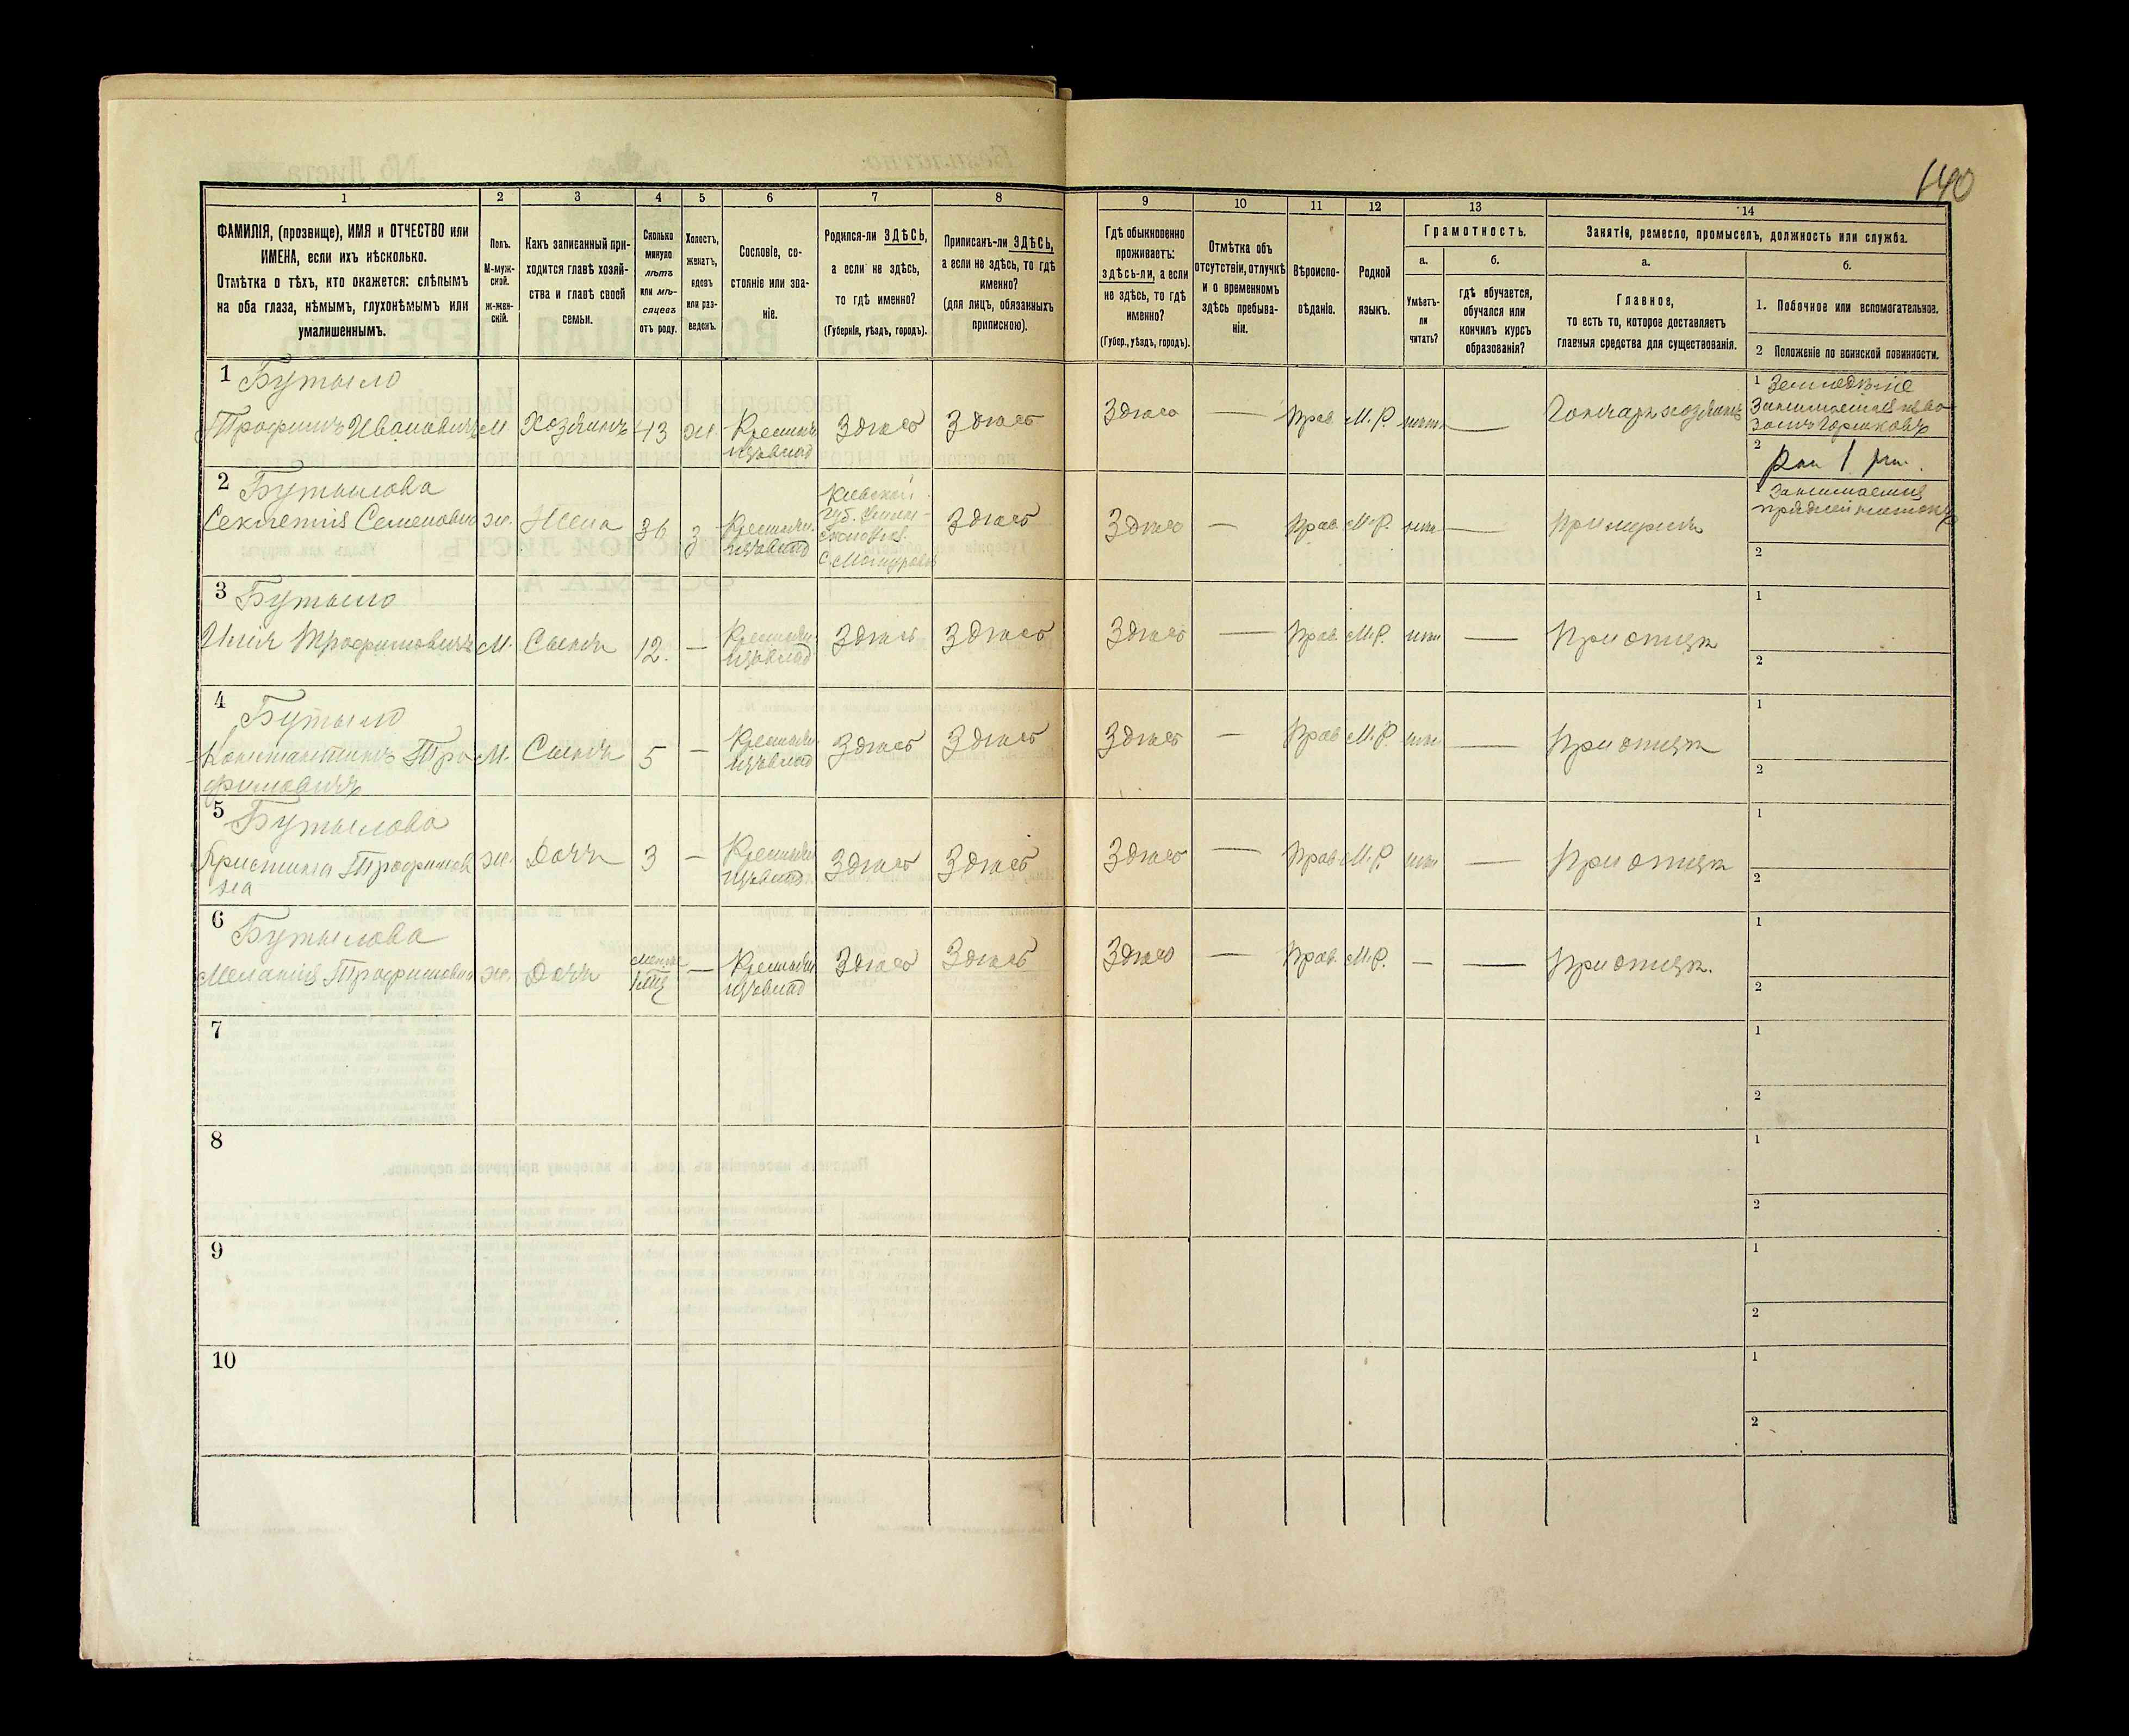 140
1
2
3
4
5
6
7
8
9
10
11
12
13
14
ФАМИЛІЯ, (прозвище), ИМЯ и ОТЧЕСТВО или
ИМЕНА, если ихъ нѣсколько.
Отмѣтка о тѣхъ, кто окажется: слѣпымъ
на оба глаза, нѣмымъ, глухонѣмымъ или
умалишеннымъ.
Полъ.
М-муж-
ской.
ж-жен-
скій.
Какъ записанный при-
ходится главѣ хозяй-
ства и главѣ своей
семьи.
Сколько
минуло
лѣтъ
или мѣ-
сяцевъ
отъ роду.
Холостъ,
женатъ,
вдовъ
или раз-
веденъ.
Сословіе, со-
стояніе или зва-
ніе.
Родился-ли ЗДѢСЬ,
а если не здѣсь,
то гдѣ именно?
(Губернія, уѣздъ, городъ).
Приписанъ-ли ЗДѢСЬ,
а если не здѣсь, то гдѣ
именно?
(для лицъ, обязанныхъ
припискою).
Гдѣ обыкновенно
проживаетъ:
здѣсь-ли, а если
не здѣсь, то гдѣ
именно?
(Губер., уѣздъ, городъ).
Отмѣтка объ
отсутствіи, отлучкѣ
и о временномъ
здѣсь пребыва-
ніи.
Вѣроиспо-
вѣданіе.
Родной
языкъ.
Грамотность.
а.
Умѣетъ-
ли
читать?
б.
гдѣ обучается,
обучался или
кончилъ курсъ
образованія?
Занятіе, ремесло, промыселъ, должность или служба.
а.
Главное,
то есть то, которое доставляетъ
главныя средства для существованія.
б.
1. Побочное или вспомогательное.
2 Положеніе по воинской повинности.
1 Бутыло
Трофимъ Ивановичъ
М.
Хозяинъ
43
ж.
Крестьян.
изъ влад
Здѣсь
Здѣсь
Здѣсь
—
Прав.
М.Р.
—
Гончаръ хозяинъ
1 Земледѣліе
Занимается изво
зомъ Горшковъ
2
2 Бутылова
Секлетія Семеновна
ж.
Жена
36
З
Крестьян.
изъ влад
Кіевской
губ.
Здѣсь
Здѣсь
—
Прав.
М.Р.
—
При мужѣ
1 Занимается
2
3 Бутыло
Илія Трофимовичъ
М.
Сынъ
12.
—
Крестьян.
изъ влад
Здѣсь
Здѣсь
Здѣсь
—
Прав.
М.Р.
—
При отцѣ
1
2
4 Бутыло
Константинъ Тро
фимовичъ
М.
Сынъ
5
—
Крестьян.
изъ влад
Здѣсь
Здѣсь
Здѣсь
—
Прав
М.Р.
—
При отцѣ
1
2
5 Бутылова
Христина Трофимов
на
ж.
Дочь
3
—
Крестьян
изъ влад
Здѣсь
Здѣсь
Здѣсь
—
Прав.
М.Р.
—
При отцѣ
1
2
6 Бутылова
Меланія Трофимовна
ж.
Дочь
—
Крестьян
изъ влад
Здѣсь
Здѣсь
Здѣсь
—
Прав.
М.Р.
—
—
При отцѣ.
1
2
7
1
2
8
1
2
9
1
2
10
1
2